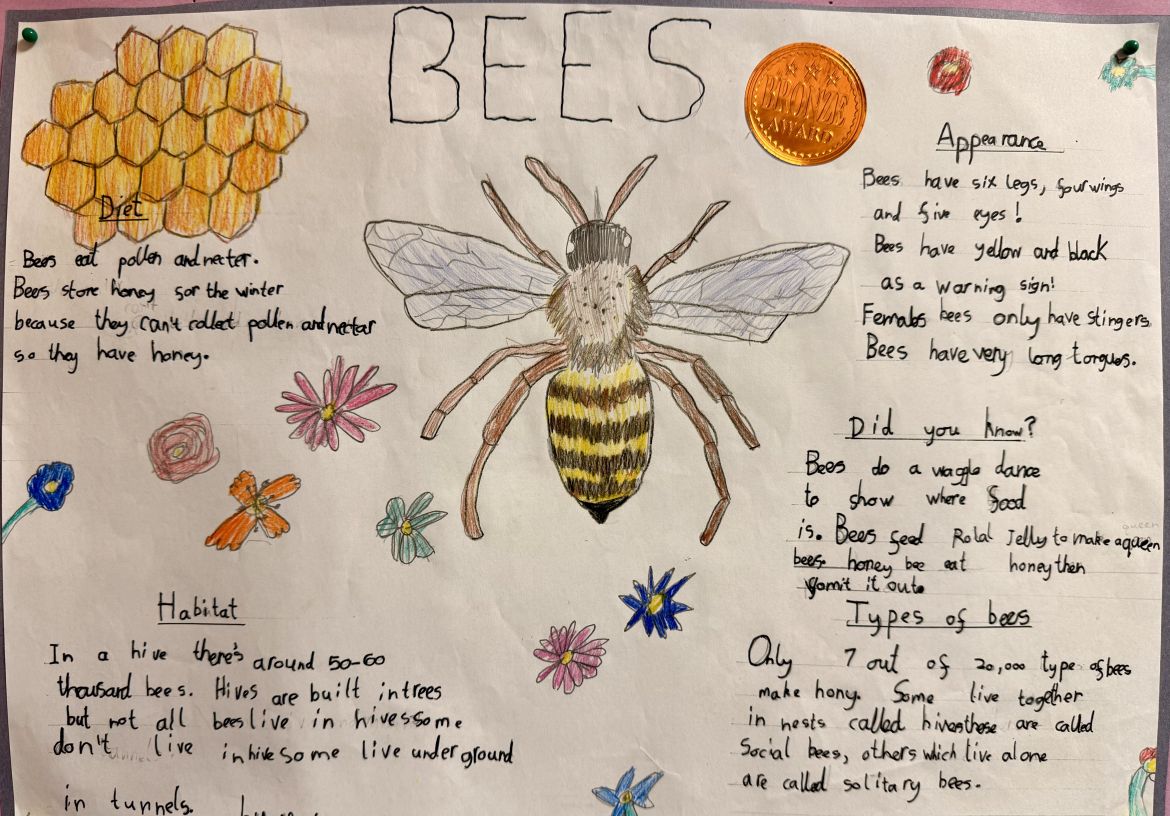 BEES
BRONZE
AWARD
Diet
Bees eat pollen and necter.
Bees store honey sor the winter
because they can't collect pollen and nectar
so they have honey.
Appearance
Bees have six legs, four wings
and five eyes!
Bees have yellow and black
as a warning sign!
Females bees only have stingers
Bees have very long tongues.
Did you know?
Bees do a waggle dance
to show where food
queen
is. Bees feed Rolal Jelly to make a queen
bees. honey bee eat honey then
vomit it out.
Habitat
In a hive there's around 50-60
thousand bees. Hives are built in trees
but not all bees live in hives some
don't live in hive some live underground
in tunnels.
Types of bees
Only 7 out of 20,000 type of bees
make hony. Some live together
in nests called hives these are called
Social bees, others which live alone
are called solitary bees.